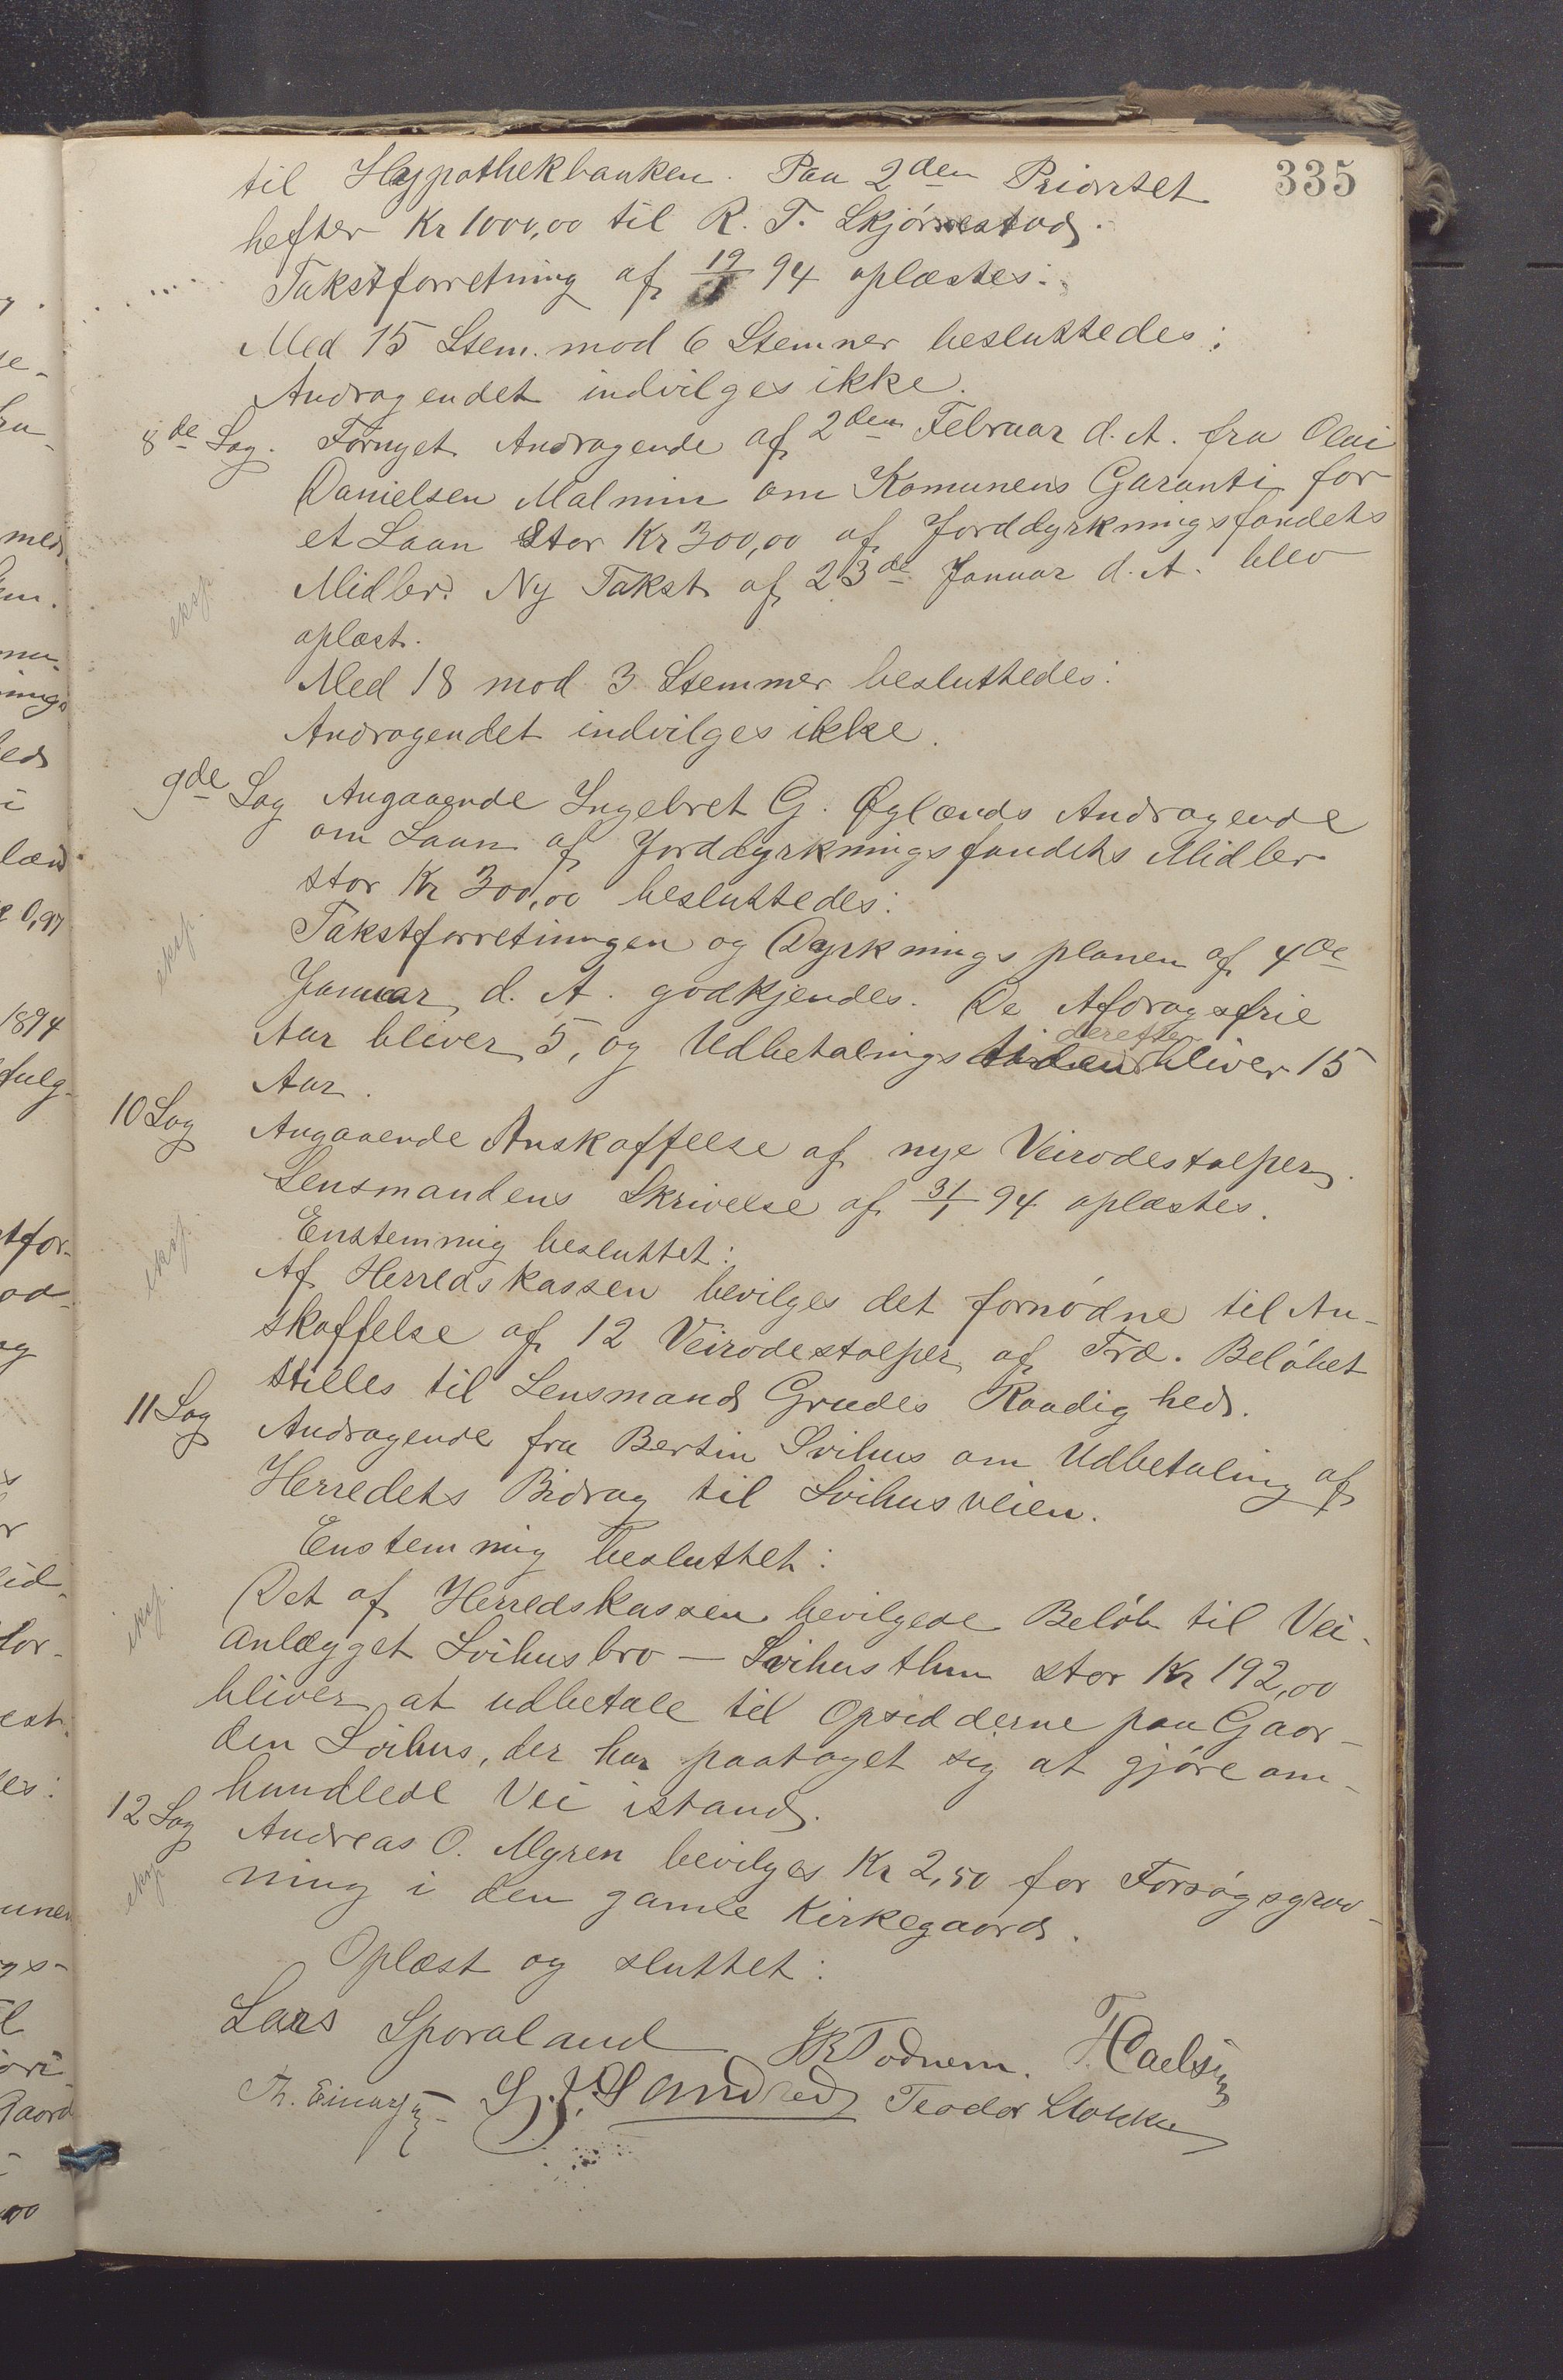 335
til Hypothekbanken. Paa 2den Prioritet
hefter Kr 1000,00 til R. T. Skjørrestad.
Takstforretning af 19/1 94 oplæstes:
Med 15 Stem. mod 6 Stemner besluttedes:
Andragendet indvilges ikke.
8de Sag. Fornyet Andragende af 2den Februar d. A. fra Olai
Danielsen Malmin om Komunens Garanti for
et Laan stor Kr 300,00 af Jorddyrkningsfondets
Midler. Ny Takst af 23de Januar d. A. blev
eksp.
oplæst.
Med 18 mod 3 Stemmer besluttedes:
Andragendet indvilges ikke.
9de Sag Angaaende Ingebret G. Øglænds Andragende
om Laan af Jorddyrkningsfondets Midler
stor Kr 300,00 besluttedes:
eksp.
Takstforretningen og Dyrkningsplanen af 4de
Januar d. A. godkjendes. De Afdragsfrie
Aar bliver 5, og Udbetalingstiden derefter bliver 15
Aar.
10 Sag Angaaende Anskaffelse af nye Veirodestolper.
Lensmandens Skrivelse af 31/1 94 oplæstes.
eksp.
Enstemmig besluttet:
Af Herredskassen bevilges det fornødne til An-
skaffelse af 12 Veirodestolper af Træ. Beløbet
stilles til Lensmand Grudes Raadighed.
11 Sag Andragende fra Bertin Svihus om Udbetaling af
Herredets Bidrag til Svihusveien.
Enstemmig besluttet:
eksp.
Det af Herredskassen bevilgede Beløb til Vei-
anlægget Svihusbro - Svihusthun stor Kr 192,00
bliver at udbetale til Opsidderne paa Gaar-
den Svihus, der har paataget sig at gjøre om-
handlede Vei istand.
12 Sag Andreas O. Myren bevilges Kr 2,50 for Forsøgsgrav-
eksp.
ning i den gamle Kirkegaard.
Oplæst og sluttet:
Lars Sporaland Todnem.
Th. Einarsen S. J. Sandved Teodor Stokka